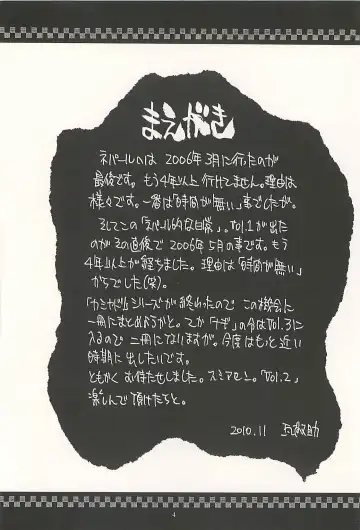 まえがき
ネパールへは 2006年 3月に行ったのが
最後です。もう4年以上行けてません。理由は
様々です。一番は「時間が無い」事でしたが。
そしてこの「ネパール的な日常」。Vol.1が出た
のがその直後で 2006年5月の事です。もう
4年以上が経ちました。理由は「時間が無い」
からでした(笑)。
シリーズが終わったので この機会に
一冊にまとめようかと。の分はVol.3に
入るので 二冊になりますが。今度はもっと近い
時期に出したいです。
ともかく お待たせしました。スミマセン。「Vol.2」
楽しんで頂けたらと。
2010.11